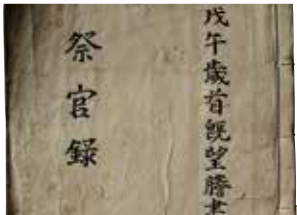 戊午歲首旣望謄書
祭官錄